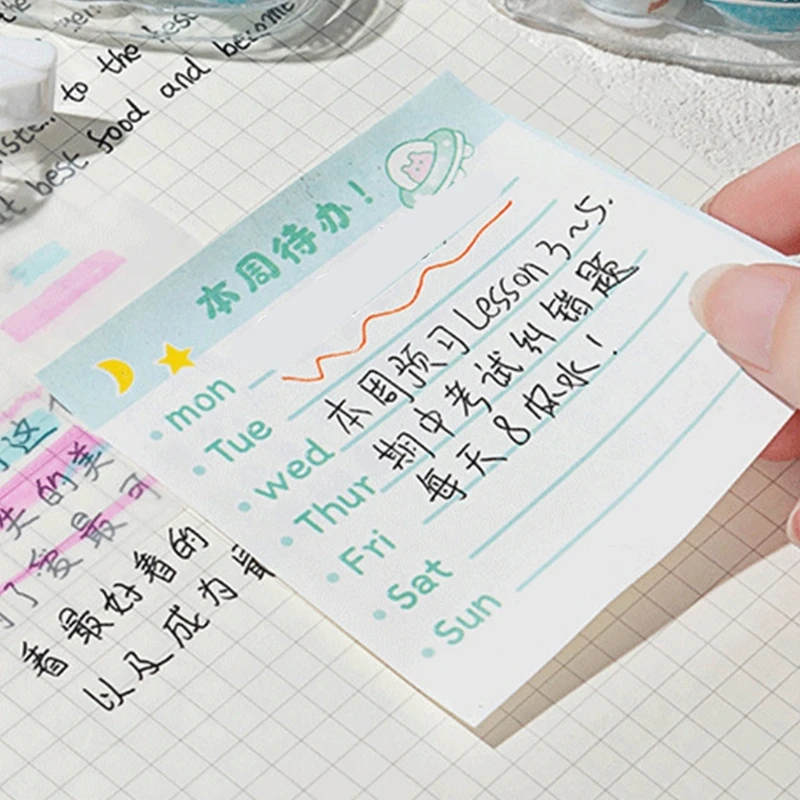 to the best
best food and become
本周待办！
mon
Tue
wed 本周预习Lesson 3~5.
Thur 期中考试纠错题
Fri 每天8杯水！
Sat
Sun
这
的美
最 可
看最好看的
以及成为